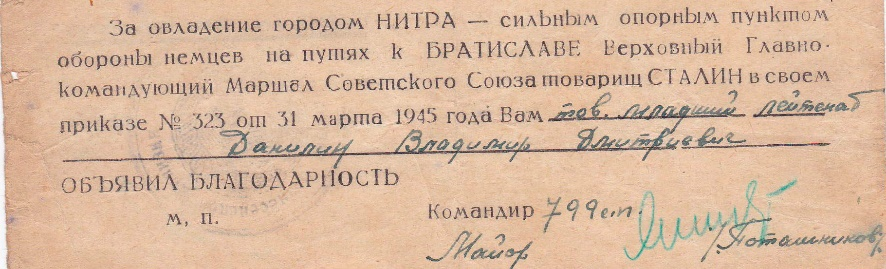 За овладение городом НИТРА — сильным опорным пунктом
обороны немцев на путях к БРАТИСЛАВЕ Верховный Главно-
командующий Маршал Советского Союза товарищ СТАЛИН в своем
приказе № 323 от 31 марта 1945 года Вам тов. младший
Данилин Владимир Дмитриевич
ОБЪЯВИЛ БЛАГОДАРНОСТЬ
м. п. Командир 799 с.п.
Майор /Поташников/